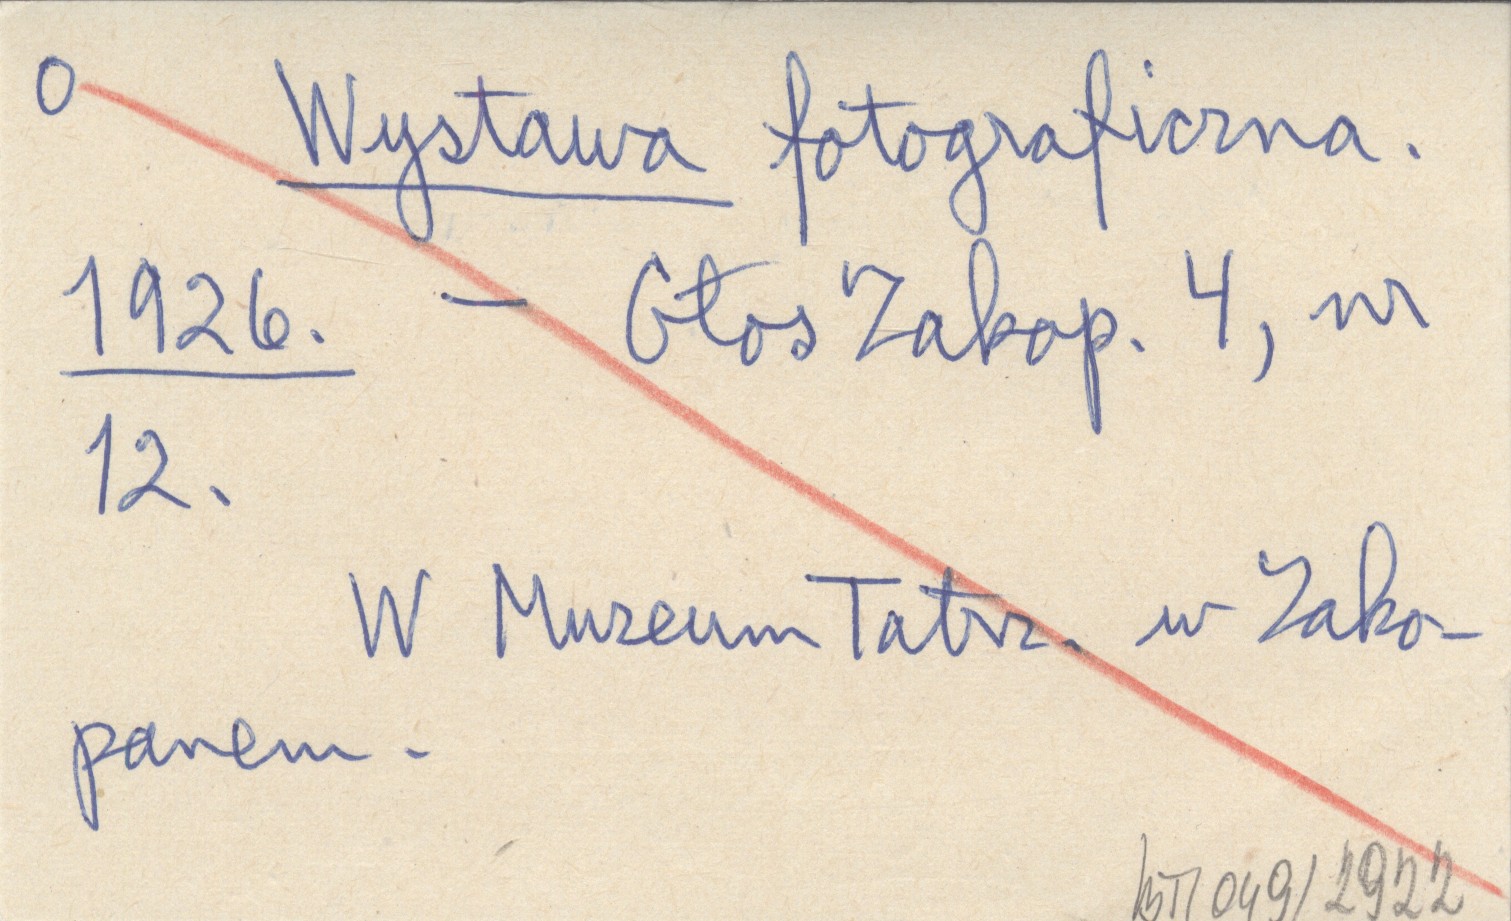 O Wystawa fotograficzna.
1926. – Głos Zakop. 4, nr
12.
W Muzeum Tatrz. w Zako-
panem.
049/2922